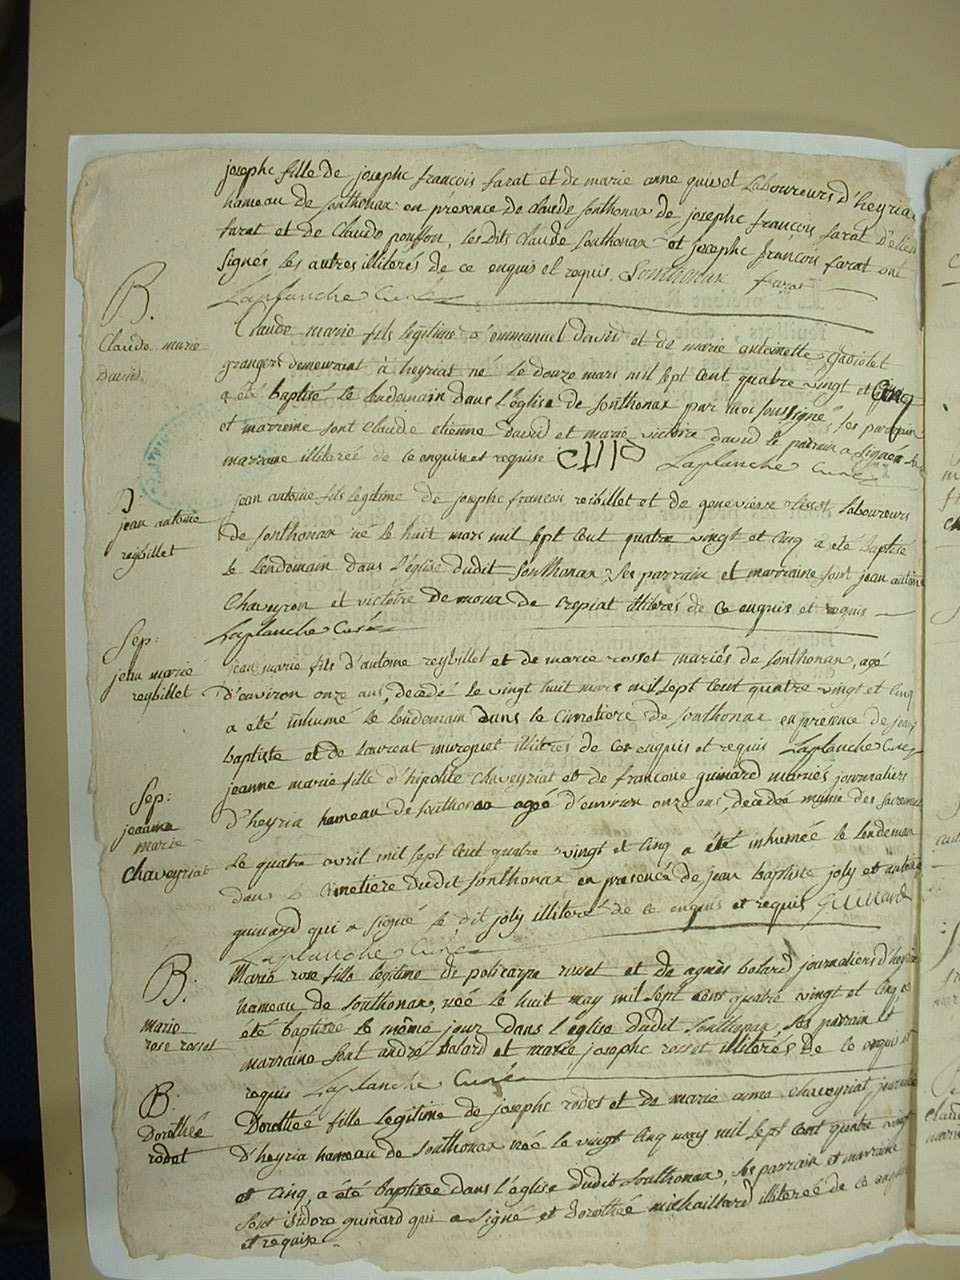 josephe fille de josephe françois farat et de marie anne guiet Laboureurs d'heyriat
hameau de sonthonax en présence de claude sonthonax de josephe françois farat
farat et de Claude ponsson, les dits claude sonthonax et josephe françois farat ont
signés les autres illiterés de ce enquis et requis. Sonthonax farat
Laplanche Curé
B.
Claude marie
david.
Claude marie fils légitime d'emmanuel david et de marie antoinette
grangers demeurant à heyriat né le douze mars mil sept cent quatre vingt et cinq
a été baptisé le lendemain dans l'église de sonthonax par moi soussigné, ses parrain
et marreine sont claude etienne david et marie victoire david le parrain a signé
marraine illiterée de ce enquise et requise
Laplanche Curé
jean antoine
reybillet
jean antoine fils légitime de josephe françois reibillet et de genevieve Laboureurs
de sonthonax né le huit mars mil sept cent quatre vingt et cinq a été baptisé
le lendemain dans l'église dudit sonthonax, ses parrain et marraine sont jean antoine
Chaveyron et victoire demoux de crepiat illiterés de ce enquis et requis
Laplanche Curé
Sep:
jean marie
reybillet
jean marie fils d'antoine reybillet et de marie rosset mariés de sonthonax, agé
d'environ onze ans, décédé le vingt huit mars mil sept cent quatre vingt et cinq
a été inhumé le lendemain dans le cimetiere de sonthonax en presence de jean
baptiste et de laurent illitres de ce enquis et requis Laplanche Curé
Sep:
jeanne
marie
chaveyriat
jeanne marie fille d'hipolite chaveyriat et de françoise guinard mariés journaliers
d'heyria hameau de sonthonax agée d'environ onze ans, décédée munie des sacremens
le quatre avril mil sept cent quatre vingt et cinq a été inhumée le lendemain
dans le cimetiere dudit sonthonax en présence de jean baptiste joly et antoine
guinard qui a signé le dit joly illiteré de ce enquis et requis guinard
Laplanche Curé
B:
marie
rose rosset
Marie rose fille légitime de policarpe rosset et de agnès bolard journaliers d'heyria
hameau de sonthonax, née le huit may mil sept cent quatre vingt et cinq, a
été baptisée le même jour dans l'église dudit sonthonax, ses parrain et
marraine sont andré bolard et marie josephe rosset illitérés de ce enquis et
requis Laplanche Curé
B:
Dorothée
rodet
Dorothée fille légitime de josephe rodet et de marie anne chaveyriat
d'heyria hameau de sonthonax née le vingt cinq may mil sept cent quatre vingt
et cinq, a été baptisée dans l'église dudit sonthonax, ses parrain et marraine
sont isidore guinard qui a signé et dorothée michaillard illiterée de ce enquise
et requise.